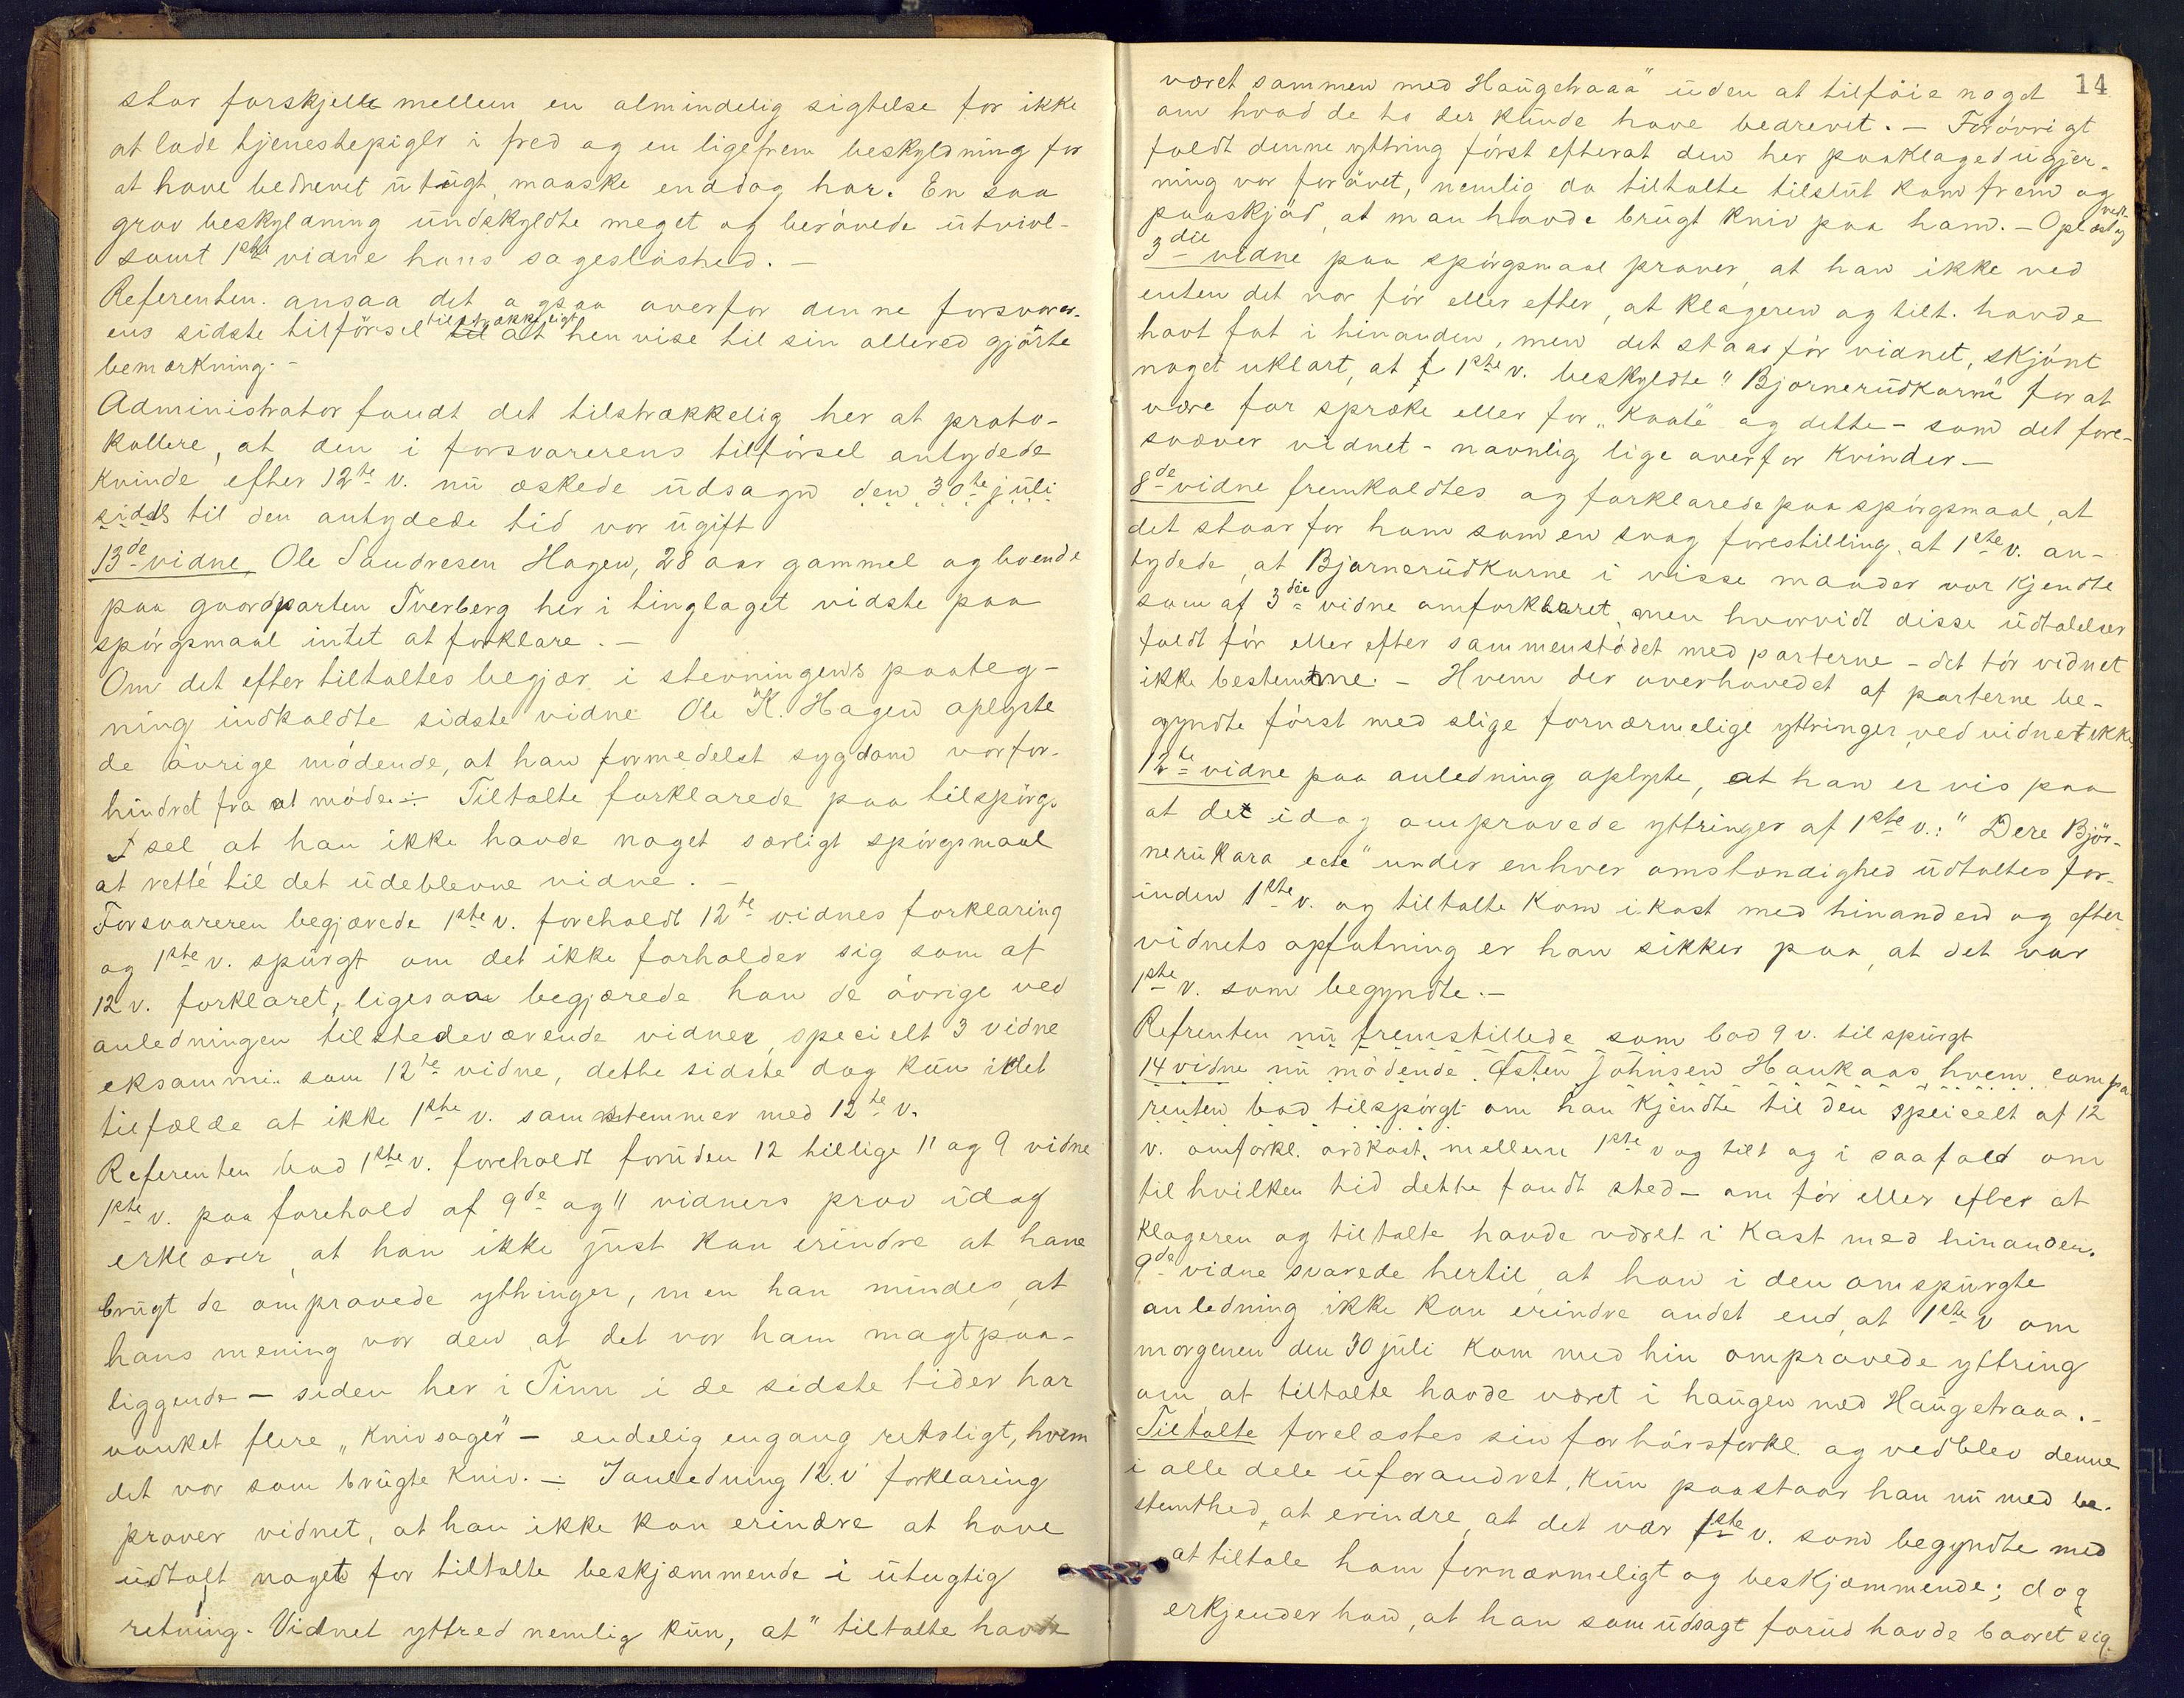 stor forskjell mellem en almindelig sigtelse for ikke
at lade tjenestepiger i fred og en ligefrem beskyldning for
at have bedrevet utugt, maaske enddog hor. En saa
grov beskyldning undskyldte meget og berövede utvivl-
somt 1ste vidne hans sageslöshed. —
Referenten ansaa det ogsaa overfor denne forsvarer-
ens sidste tilförsel tilstrækkeligt at henvise til sin allered gjorte
bemærkning. -
Administrator fandt det tilstrækkelig her at proto-
kollere, at den i forsvarerens tilförsel antydede
kvinde efter 12te v. nu æskede udsagn den 30te juli
sidst til den antydede tid var ugift
13de vidne, Ole Sandresen Hagen, 28 aar gammel og boende
paa gaardparten Tverberg her i tinglaget vidste paa
spörgsmaal intet at forklare. —
Om det efter tiltaltes begjær i stevningens paateg-
ning indkaldte sidste vidne Ole K. Hagen oplyste
de övrige mödende, at han formedelst sygdom var for-
hindret fra at möde. — Tiltalte forklarede paa tilspörg-
sel at han ikke havde noget særligt spörgsmaal
at rette til det udeblevne vidne. —
Forsvareren begjærede 1ste v. foreholdt 12te vidnes forklaring
og 1ste v. spurgt om det ikke forholder sig som af
12 v. forklaret, ligesaa begjærede han de övrige ved
anledningen tilstedeværende vidner, specielt 3 vidne
eksamin. som 12te vidne, dette sidste dog kun i det
tilfælde at ikke 1ste v. samstemmer med 12te v.
Referenten bad 1ste v. foreholdt foruden 12 tillige 11 og 9 vidne
1ste v. paa forehold af 9de og 11 vidners prov idag
erklærer, at han ikke just kan erindre at have
brugt de omprovede ytringer, men han mindes, at
hans mening var den, at det var ham magtpaa-
liggende — siden her i Tinn i de sidste tider har
vanket flere „knivsager" — endelig engang retsligt, hvem
det var som brugte kniv. — I anledning 12. v forklaring
prover vidnet, at han ikke kan erindre at have
udtalt noget for tiltalte beskjæmmende i utugtig
retning. Vidnet yttred nemlig kun, at "tiltalte havde
14
været sammen med Haugetraaa" uden at tilföie noget
om hvad de to der kunde have bedrevet. — Forövrigt
faldt denne yttring först efterat den her paaklaged ugjer-
ning var forövet, nemlig da tiltalte tilslut kom frem og
paaskjöd, at man havde brugt kniv paa ham. — Oplæst vedt.
3die vidne paa spörgsmaal prover, at han ikke ved
enten det var för eller efter, at klageren og tilt. havde
havt fat i hinanden, men det staar för vidnet, skjönt
noget uklart, at 1ste v. beskyldte "Bjørnerudkarne" for at
være for spræke eller for „kaate" og dette - som det fore-
svæver vidnet - navnlig lige overfor kvinder —
8de vidne fremkaldtes og forklarede paa spörgsmaal, at
det staar for ham som en svag forestilling, at 1ste v. an-
tydede, at Bjørnerudkarne i visse maader var kjendte
som af 3die vidne omforklaret, men hvorvidt disse udtalelser
faldt för eller efter sammenstödet med parterne - det tör vidnet
ikke bestemme. — Hvem der overhovedet af parterne be-
gyndte först med slige fornærmelige yttringer, ved vidnet ikke.
12te vidne paa anledning oplyste, at han er vis paa
at de idag omprovede yttringer af 1ste v.: "Dere Björ-
nerukara ede" under enhver omstændighed udtaltes for-
inden 1ste v. og tiltalte kom i kast med hinanden og efter
vidnets opfatning er han sikker paa, at det var
1ste v. som begyndte. —
Refrenten nu fremstillede som bad 9 v. tilspurgt
14 vidne nu mödende Østen Johnsen Haukaas, hvem compa-
renten bad tilspörgt om han kjendte til den specielt af 12
v. omforkl. ordkast. mellem 1ste v og tilt og i saafald om
til hvilken tid dette fandt sted — om för eller efter at
klageren og tiltalte havde været i kast med hinanden.
9de vidne svarede hertil, at han i den omspurgte
anledning ikke kan erindre andet end, at 1ste v om
morgenen den 30 juli kom med hin omprovede yttring
om, at tiltalte havde været i haugen med Haugetraaa. —
Tiltalte forelæstes sin forhörsforkl. og vedblev denne
i alle dele uforandret, kun paastaar han nu med be-
stemthed, at erindre, at det var 1ste v. som begyndte med
at tiltale ham fornærmeligt og beskjæmmende; dog
erkjender han, at han som udsagt forud havde baaret sig